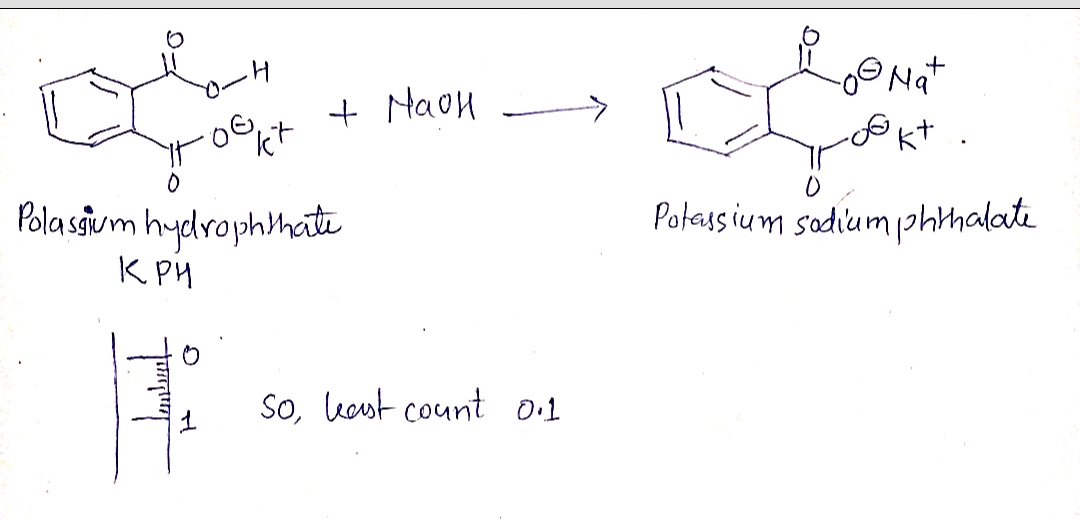 O
O-H
O⊖K+ + NaOH ⟶
O
O
O⊖Na+
O⊖K+ .
O
Polassium hydrophthate
KPH
Potassium sodium phthalate
0
1
So, least count 0.1